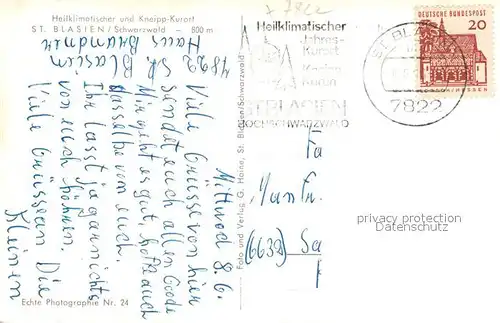 Heilklimatischer und Kneipp-Kurort
ST. BLASIEN / Schwarzwald - 800 m
7822 St. Blasien
Haus Brunner
Mittwoch 8.6.
Viele Grüsse von hier
sendet euch allen Goede
Mir geht es gut, hoffe auch
dasselbe von euch.
Ihr lasst ja gar nichts
von euch hören.
Viele Grüsse an Die
Kleinen
Echte Photographie Nr. 24
Foto und Verlag G. Haine, St. Blasien/Schwarzwald
Heilklimatischer
Jahres-
Kurort
Kneipp
Kurun
ST. BLASIEN
HOCHSCHWARZWALD
ST. BLAS
7822
DEUTSCHE BUNDESPOST
20
LORSCH/HESSEN
Fa
(6639) Sa
privacy protection
Datenschutz